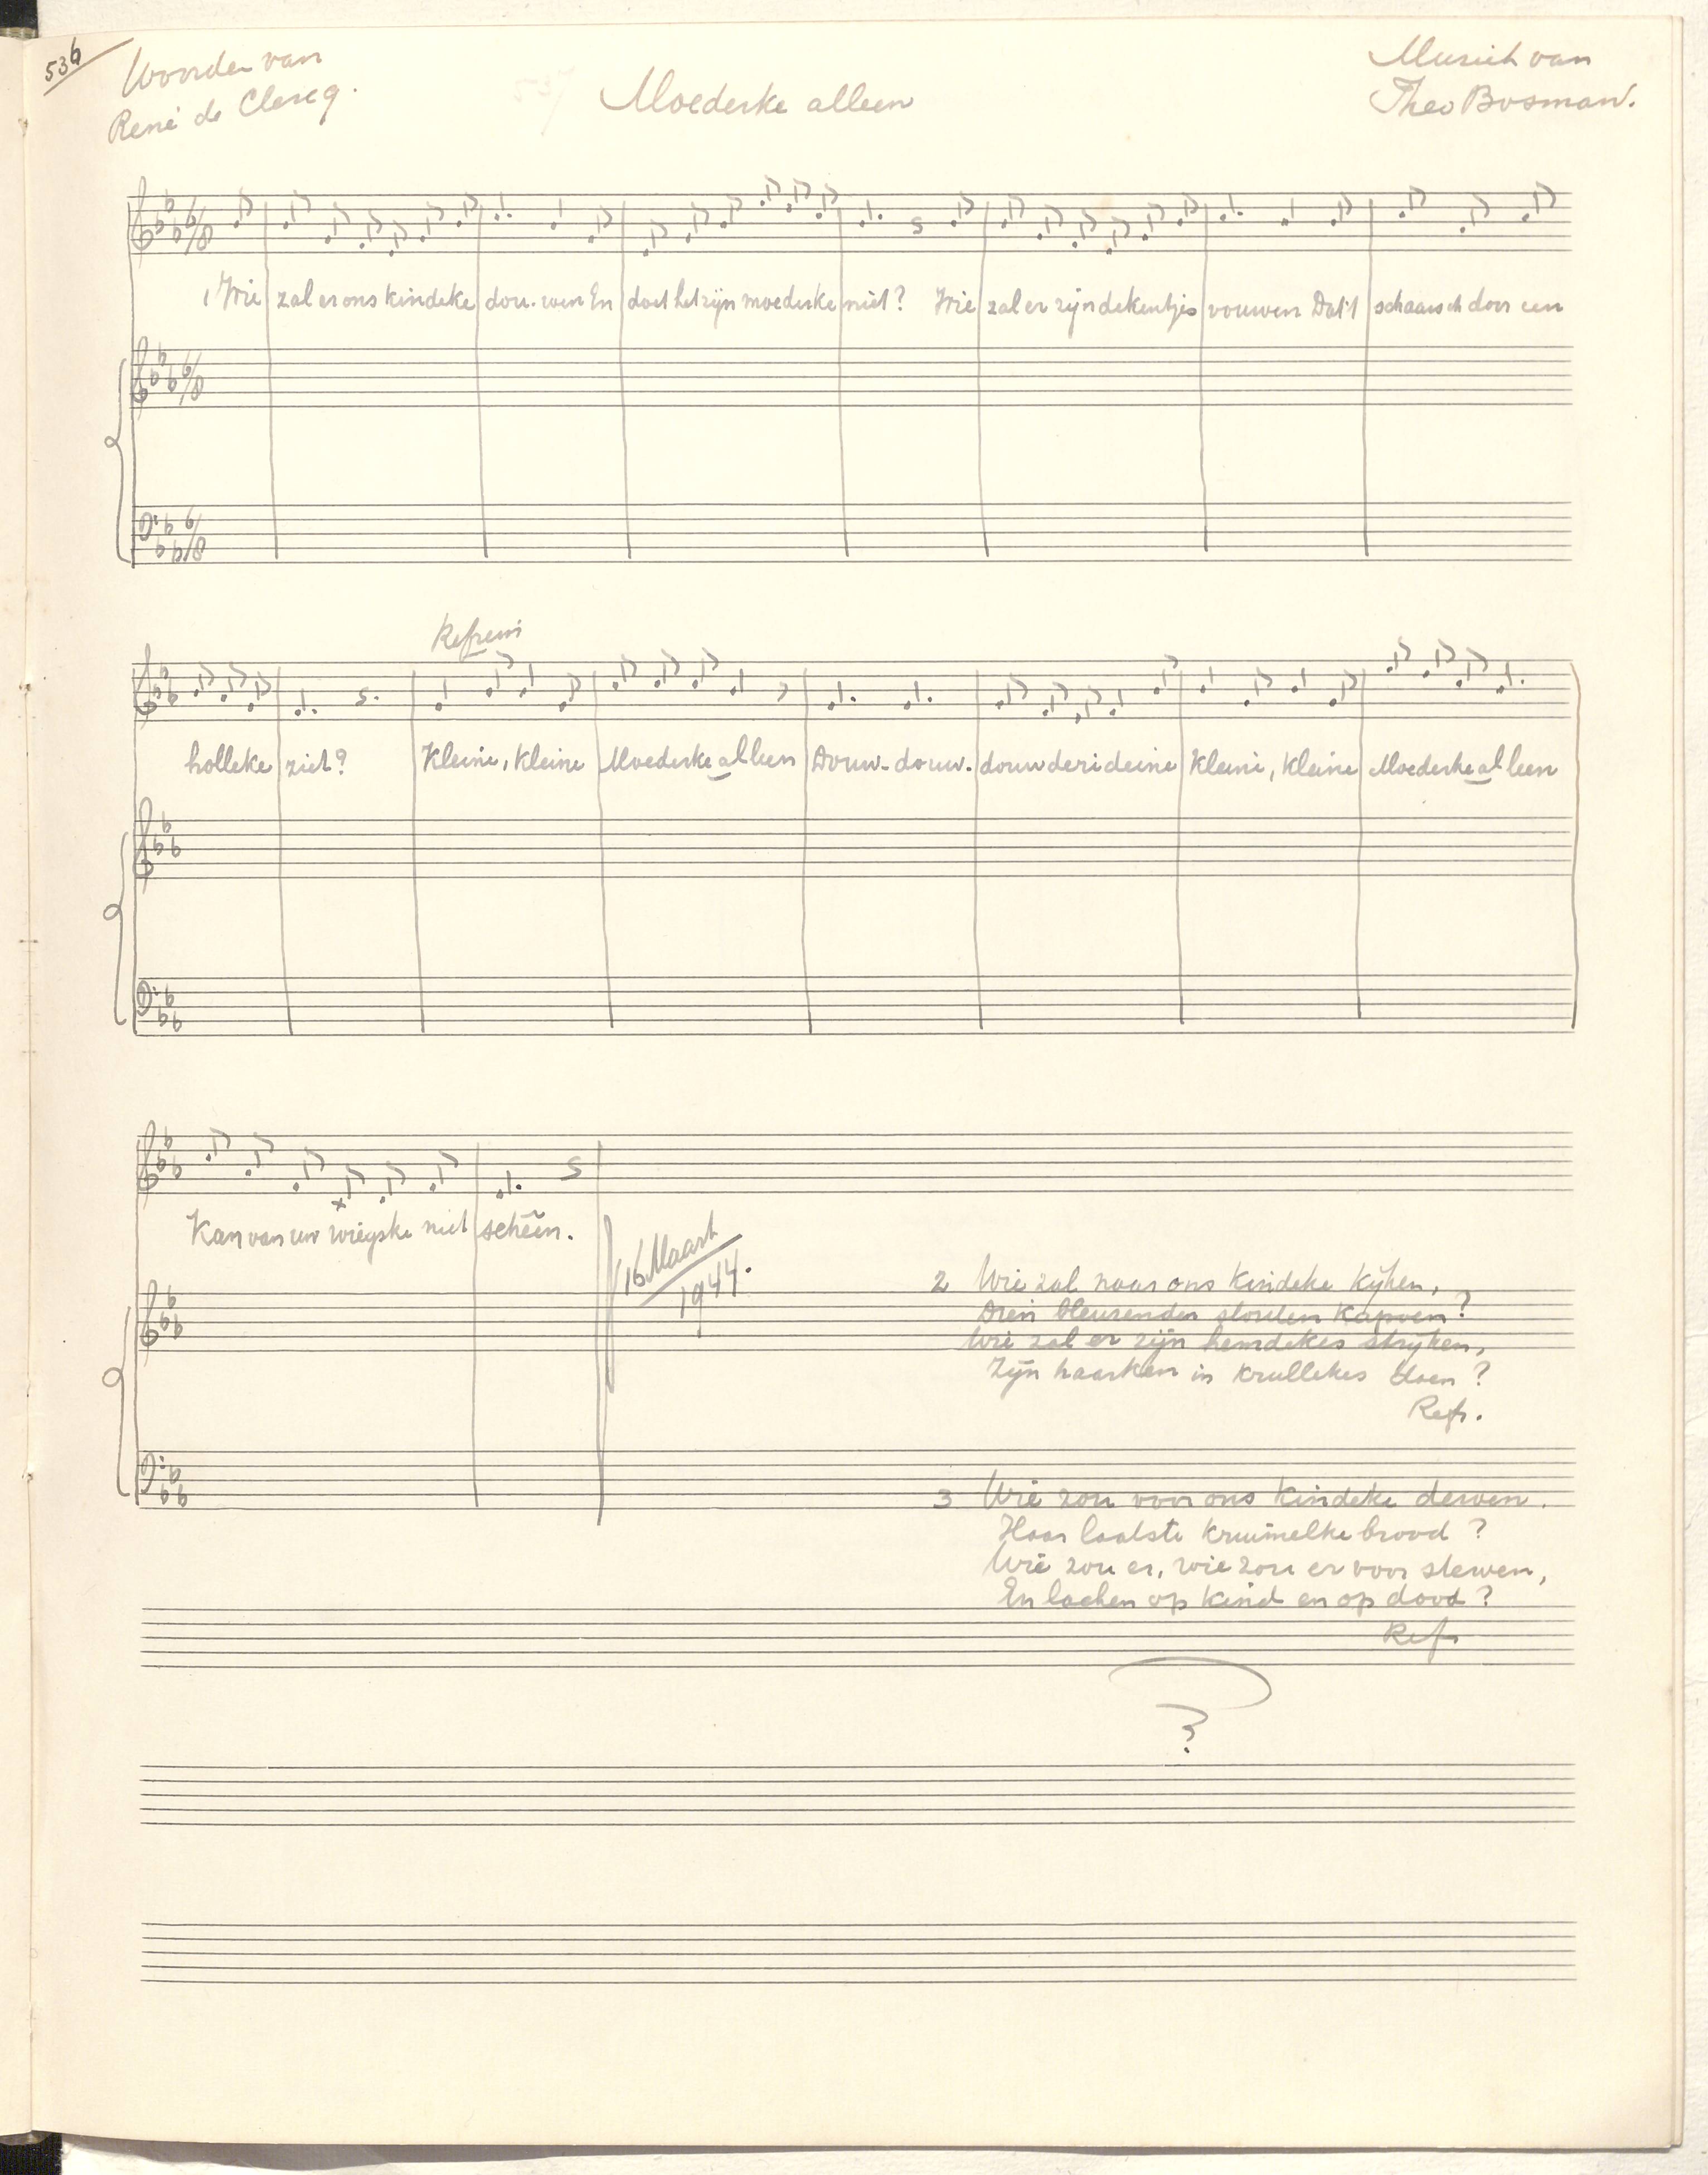 536
Woorden van
René de Clercq.
Moederke alleen
Muziek van
Theo Bosman.
1 Wie zal er ons kindeke dou-wen En doet het zijn moederke niet? Wie zal er zijn dekentjes vouwen Dat 't schaarsch door een
Refrein
holleke ziet? Kleine, kleine Moederke alleen Douw-douw-douwderideine Kleine, kleine Moederke alleen
Kan van uw wiegske niet scheên.
16 Maart
1944.
2 Wie zal naar ons kindeke kijken,
Wie zal er zijn hemdekes strijken,
Zijn haarken in krullekes doen?
Refr.
3 Wie zou voor ons kindeke derven.
Haar laatste kruimelke brood?
Wie zou er, wie zou er voor sterven,
En lachen op kind en op dood?
Refr
?